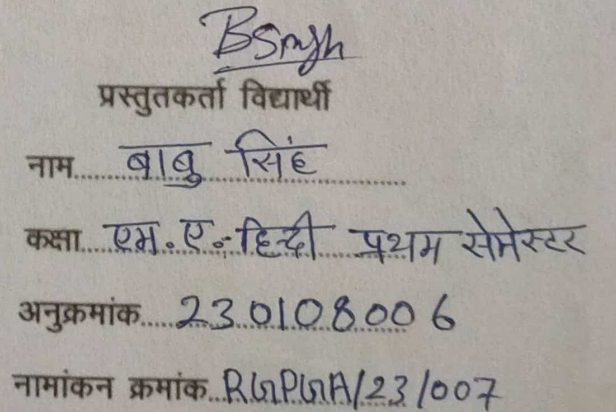 BSingh
प्रस्तुतकर्ता विद्यार्थी
नाम..... बाबु सिंह
कक्षा... एम.ए.-हिन्दी प्रथम सेमेस्टर
अनुक्रमांक.... 230108006
नामांकन क्रमांक.. RGPGA/23/007